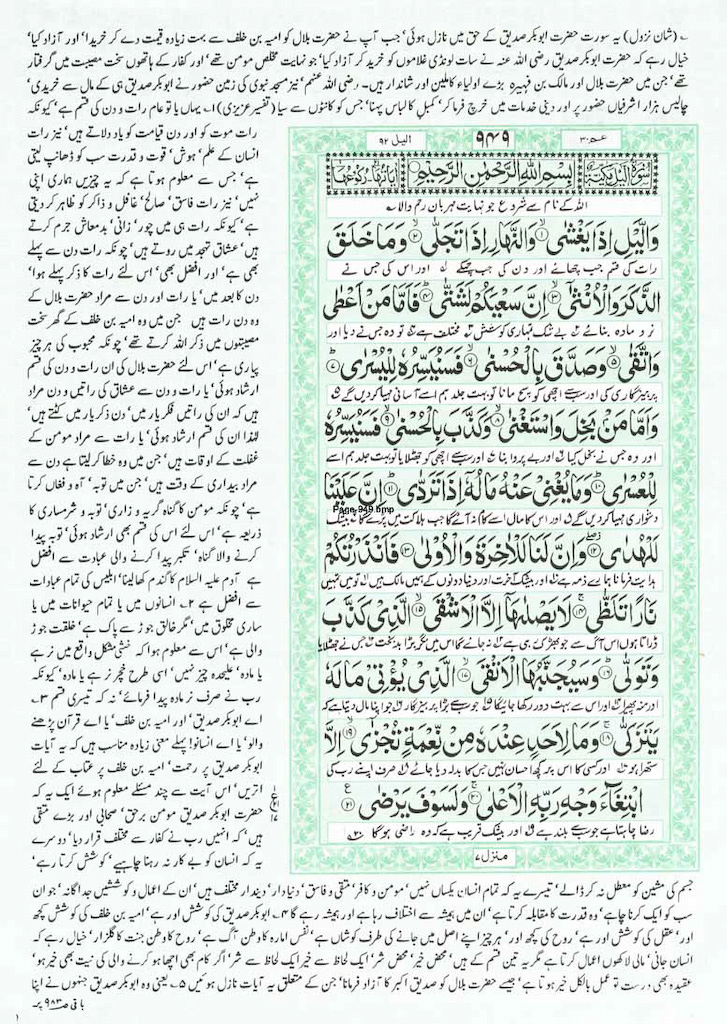 ؎ (شان نزول) یہ سورت حضرت ابوبکر صدیق کے حق میں نازل ہوئی' جب آپ نے حضرت بلال کو امیہ بن خلف سے بہت زیادہ قیمت دے کر خریدا' اور آزاد کیا'
خیال رہے کہ حضرت ابوبکر صدیق رضی اللہ عنہ نے سات لونڈی غلاموں کو خرید کر آزاد کیا' جو نہایت مخلص مومن تھے' اور کفار کے ہاتھوں سخت مصیبت میں گرفتار
تھے' جن میں حضرت بلال اور مالک بن فہیرہ بڑے اولیاء کاملین اور شاندار ہیں۔ رضی اللہ عنہم' نیز مسجد نبوی کی زمین حضور نے ابوبکر صدیق ہی کے مال سے خریدی'
چالیس ہزار اشرفیاں حضور پر اور دینی خدمات میں خرچ فرما کر' کمبل کا لباس پہنا' جس کو کانٹوں سے سیا (تفسیر عزیزی) ۱؎ یہاں یا تو عام رات و دن کی قسم ہے' کیونکہ
عـم ۳۰
۹۴۹
الیل ۹۲
سورة اليل مكية
بسم الله الرحمن الرحيم
اللہ کے نام سے شروع جو نہایت مہربان رحم والا
وَالَّيْلِ اِذَا يَغْشٰى ۱ وَالنَّهَارِ اِذَا تَجَلّٰى ۲ وَمَا خَلَقَ
رات کی قسم جب چھائے اور دن کی جب چمکے اور اس کی جس نے
الذَّكَرَ وَالْاُنْثٰٓى ۳ اِنَّ سَعْيَكُمْ لَشَتّٰى ۴ فَاَمَّا مَنْ اَعْطٰى
نر و مادہ بنائے بے شک تمہاری کوشش مختلف ہے تو وہ جس نے دیا اور
وَاتَّقٰى ۵ وَصَدَّقَ بِالْحُسْنٰى ۶ فَسَنُيَسِّرُهٗ لِلْيُسْرٰى ۷
پرہیزگاری کی اور سب سے اچھی کو سچ مانا تو بہت جلد ہم اسے آسانی مہیا کردیں گے
وَاَمَّا مَنْۢ بَخِلَ وَاسْتَغْنٰى ۸ وَكَذَّبَ بِالْحُسْنٰى ۹ فَسَنُيَسِّرُهٗ
اور وہ جس نے بخل کیا اور بے پروا بنا اور سب سے اچھی کو جھٹلایا تو بہت جلد ہم اسے
لِلْعُسْرٰى ۱۰ وَمَا يُغْنِيْ عَنْهُ مَالُهٗٓ اِذَا تَرَدّٰى ۱۱ اِنَّ عَلَيْنَا
Page-949.bmp
دشواری مہیا کردیں گے اور اس کا مال اسے کام نہ آئے گا جب ہلاکت میں پڑے گا بیشک
لَلْهُدٰى ۱۲ وَاِنَّ لَنَا لَلْاٰخِرَةَ وَالْاُوْلٰى ۱۳ فَاَنْذَرْتُكُمْ
ہدایت فرمانا ہمارے ذمہ ہے اور بیشک آخرت اور دنیا دونوں کے ہمیں مالک ہیں تو میں تمہیں
نَارًا تَلَظّٰى ۱۴ لَا يَصْلٰىهَآ اِلَّا الْاَشْقَى ۱۵ الَّذِيْ كَذَّبَ
ڈراتا ہوں اس آگ سے جو بھڑک رہی ہے نہ جائے گا اس میں مگر بڑا بدبخت جس نے جھٹلایا
وَتَوَلّٰى ۱۶ وَسَيُجَنَّبُهَا الْاَتْقَى ۱۷ الَّذِيْ يُؤْتِيْ مَالَهٗ
اور منہ پھیرا اور اس سے بہت دور رکھا جائیگا جو سب سے بڑا پرہیزگار جو اپنا مال دیتا ہے کہ
يَتَزَكّٰى ۱۸ وَمَا لِاَحَدٍ عِنْدَهٗ مِنْ نِّعْمَةٍ تُجْزٰٓى ۱۹ اِلَّا
ستھرا ہو اور کسی کا اس پر کچھ احسان نہیں جس کا بدلہ دیا جائے صرف اپنے رب کی
ابْتِغَآءَ وَجْهِ رَبِّهِ الْاَعْلٰى ۲۰ وَلَسَوْفَ يَرْضٰى ۲۱
رضا چاہتا ہے جو سب سے بلند ہے اور بیشک قریب ہے کہ وہ راضی ہوگا
منزل ۷
رات موت کو اور دن قیامت کو یاد دلاتے ہیں' نیز رات
انسان کے علم' ہوش' قوت و قدرت سب کو ڈھانپ لیتی
ہے' جس سے معلوم ہوتا ہے کہ یہ چیزیں ہماری اپنی
نہیں' نیز رات فاسق' صالح' غافل و ذاکر کو ظاہر کر دیتی
ہے' کیونکہ رات ہی میں چور' زانی' بدمعاش جرم کرتے
ہیں' عشاق تہجد میں روتے ہیں' چونکہ رات دن سے پہلے
بھی ہے' اور افضل بھی' اس لئے رات کا ذکر پہلے ہوا'
دن کا بعد میں' یا رات اور دن سے مراد حضرت بلال کے
وہ دن رات ہیں جن میں وہ امیہ بن خلف کے گھر سخت
مصیبتوں میں ذکر اللہ کرتے تھے' چونکہ محبوب کی ہر چیز
پیاری ہے' اس لئے حضرت بلال کی ان رات و دن کی قسم
ارشاد ہوئی' یا رات و دن سے عشاق کی راتیں و دن مراد
ہیں کہ ان کی راتیں فکر یار میں' دن ذکر یار میں کٹتے ہیں'
لہٰذا ان کی قسم ارشاد ہوئی' یا رات سے مراد مومن کے
غفلت کے اوقات ہیں' جن میں وہ خطا کر لیتا ہے دن سے
مراد بیداری کے وقت ہیں' جن میں توبہ' آہ و فغاں کرتا
ہے' چونکہ مومن کا گناہ گریہ و زاری' توبہ و شرمساری کا
ذریعہ ہے' اس لئے اس کی قسم بھی ارشاد ہوئی' توبہ پیدا
کرنے والا گناہ' تکبر پیدا کرنے والی عبادت سے افضل
ہے آدم علیہ السلام کا گندم کھا لینا' ابلیس کی تمام عبادات
سے افضل ہے ۲؎ انسانوں میں یا تمام حیوانات میں یا
ساری مخلوق میں' مگر خالق جوڑ سے پاک ہے' خلقت جوڑ
والی ہے' اس سے معلوم ہوا کہ خنثی مشکل واقع میں نر ہے
یا مادہ' علیحدہ چیز نہیں' اسی طرح خچر نر ہے یا مادہ' کیونکہ
رب نے صرف نر مادہ پیدا فرمائے' نہ کہ تیسری قسم ۳؎
اے ابوبکر صدیق' اور امیہ بن خلف' یا اے قرآن پڑھنے
والو' یا اے انسانو! پہلے معنی زیادہ مناسب ہیں' کہ یہ آیات
ابوبکر صدیق پر رحمت' امیہ بن خلف پر عتاب کے لئے
اتریں' اس آیت سے چند مسئلے معلوم ہوئے ایک یہ کہ
حضرت ابوبکر صدیق مومن برحق' صحابی اور بڑے متقی
ہیں' کہ انہیں رب نے کفار سے مختلف قرار دیا' دوسرے
یہ کہ انسان کو بے کار نہ رہنا چاہیے' کوشش کرتا رہے'
جسم کی مشین کو معطل نہ کر ڈالے' تیسرے یہ کہ تمام انسان یکساں نہیں' مومن و کافر' متقی و فاسق' دنیادار' دیندار مختلف ہیں' ان کے اعمال و کوششیں جداگانہ' جو ان
سب کو ایک کرنا چاہے' وہ قدرت کا مقابلہ کرتا ہے' ان میں ہمیشہ سے اختلاف رہا ہے اور ہمیشہ رہے گا ۴؎ ابوبکر صدیق کی کوشش اور ہے' امیہ بن خلف کی کوشش کچھ
اور' عقل کی کوشش اور ہے' روح کی کچھ اور' ہر چیز اپنے اصل میں جانے کی طرف کوشاں ہے' نفس امارہ کا وطن آگ ہے' روح کا وطن جنت کا گلزار' خیال رہے کہ
انسان جانی' مالی لاکھوں اعمال کرتا ہے' مگر یہ تین قسم کے ہیں' محض خیر' محض شر' ایک لحاظ سے خیر ایک لحاظ سے شر' اگر کام بھی اچھا ہو کرنے والی کی نیت بھی خیر ہو'
عقیدہ بھی درست' تو عمل بالکل خیر ہوتا ہے' جیسے حضرت بلال کو صدیق اکبر کا آزاد فرمانا' جن کے متعلق یہ آیات نازل ہوئیں ۵؎ یعنی وہ ابوبکر صدیق جنہوں نے اپنا
باقی صـ ۹۸۳ پر